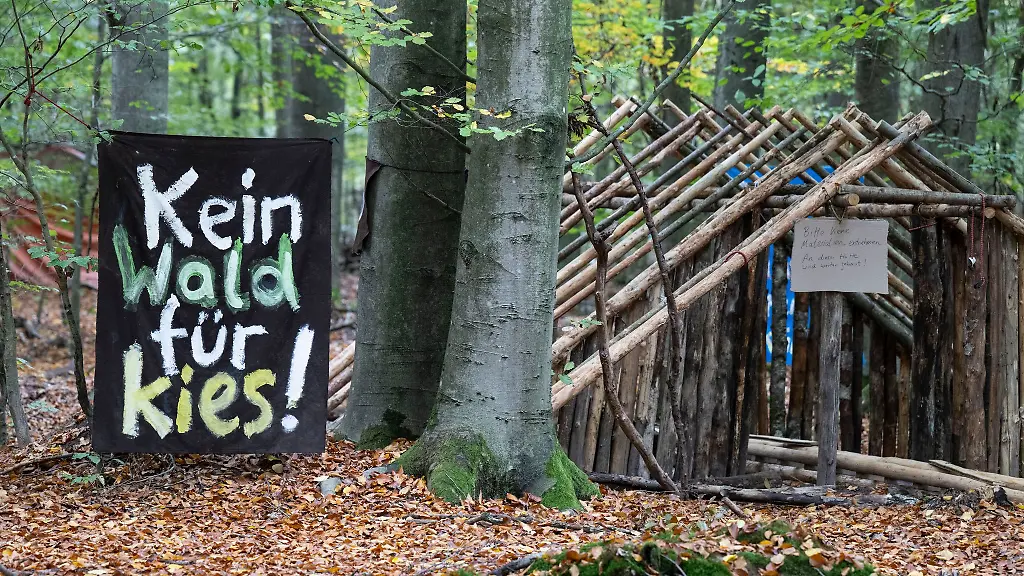 Kein
Wald
für
Kies!
Bitte keine
Materialien entnehmen
An dieser Hütte
wird weiter gebaut!